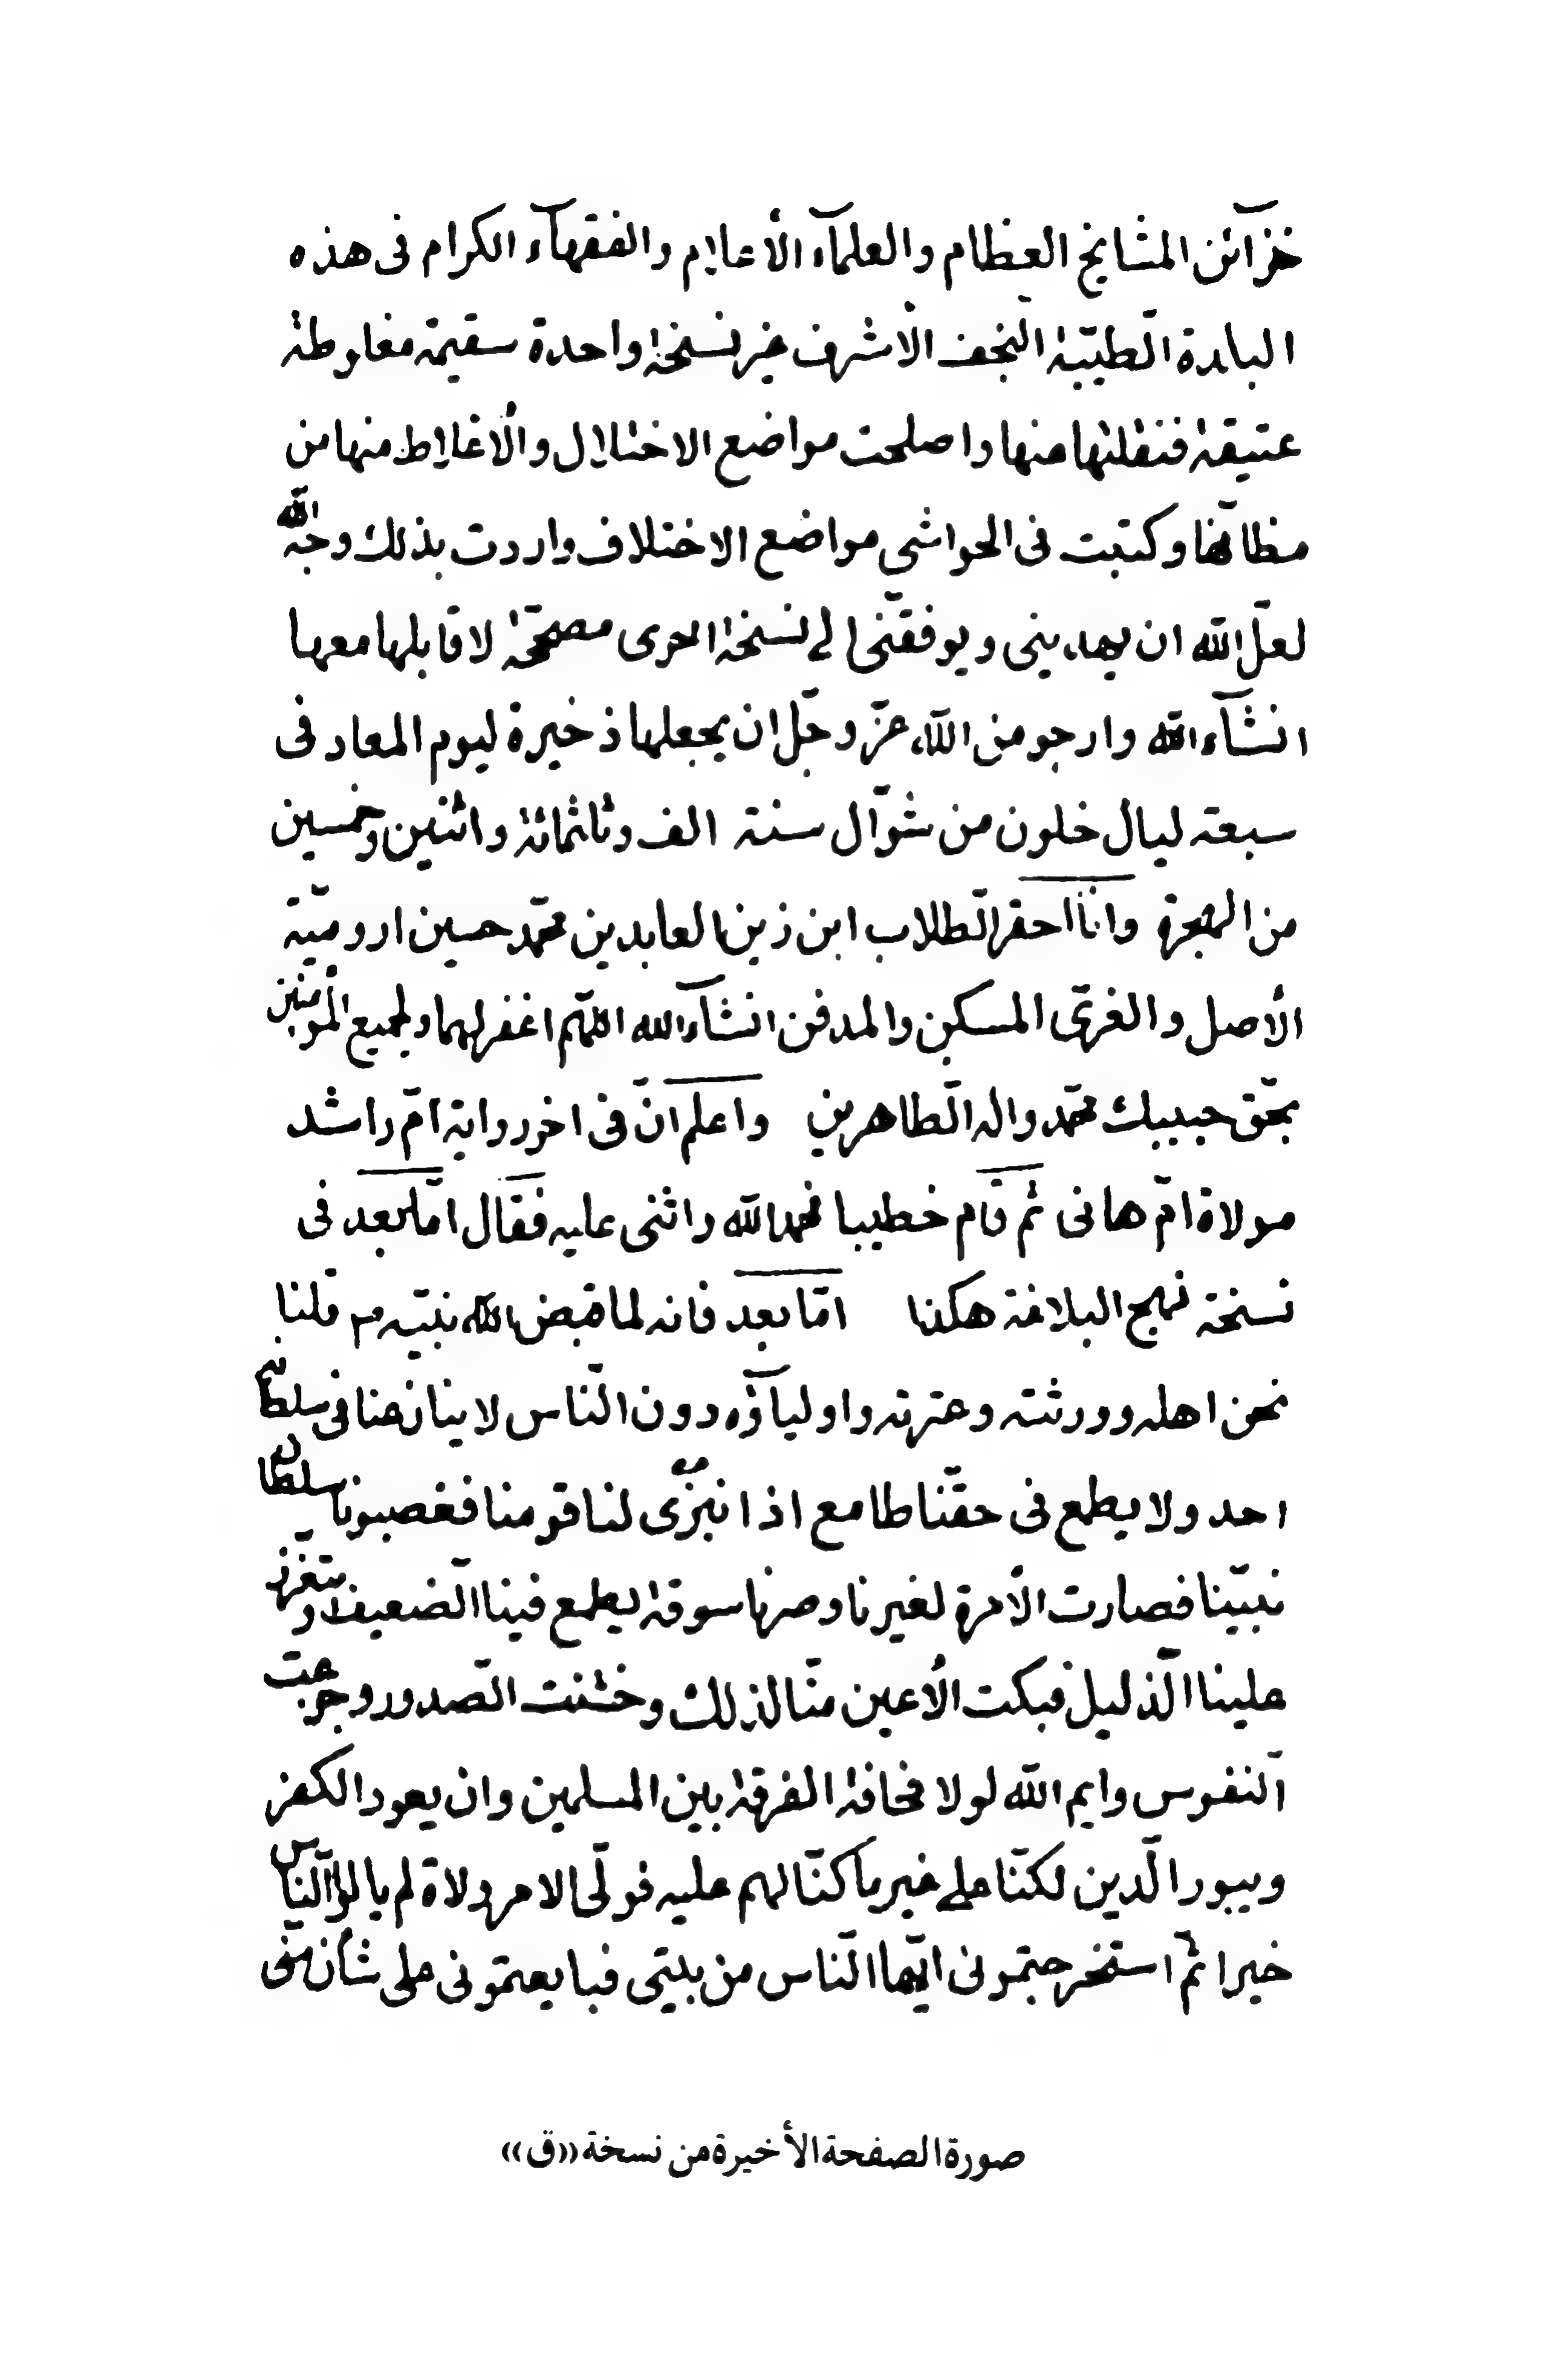 خزآئن المشايخ العظام والعلمآء الأعلام والفقهآء الكرام فى هذه
البلدة الطّيّبة النّجف الأشرف غير نسخة واحدة سقيمة مغلوطة
عتيقة فنقلتها منها واصلحت مواضع الاختلال والأغلاط منها من
مظانّها وكتبت فى الحواشى مواضع الاختلاف واردت بذلك وجه الله
لعلّ الله ان يهدينى ويوفقّنى الى نسخة اخرى مصحّحة لاقابلها معها
انشآء الله وارجو من الله عزّ وجلّ ان يجعلها ذخيرة ليوم المعاد فى
سبعة ليال خلون من شوّال سنة الف وثلثمائة واثنين وخمسين
من الهجرة وانا احقر الطّلاب ابن زين العابدين محمّد حسين اروميّة
الأصل والغرىّ المسكن والمدفن انشآء الله اللّهم اغفر لهما ولجميع المؤمنين
بحقّ حبيبك محمّد واله الطّاهرين واعلم انّ فى اخر رواية امّ راشد
مولاة امّ هانى ثم قام خطيبا فحمد الله واثنى عليه فقال امّا بعد فى
نسخة نهج البلاغة هكذا امّا بعد فانه لما قبض الله نبيّه ص قلنا
نحن اهله وورثته وعترته واوليآؤه دون النّاس لا ينازعنا فى سلطانه
احد ولا يطمع فى حقّنا طامع اذ انبزى لنا قومنا فغصبونا سلطان
نبيّنا فصارت الأمرة لغيرنا وصرنا سوقة يطمع فينا الضّعيف ويتعزّز
علينا الذّليل فبكت الأعين منّا لذلك وخشنت الصّدور وجزعت
النّفوس وايم الله لولا مخافة الفرقة بين المسلمين وان يعود الكفر
ويبور الدّين لكنّا على غير ما كنّا لهم عليه فولّى الامر ولاة لم يالوا النّاس
خيرا ثمّ استخرجتمونى ايّها النّاس من بيتى فبايعتمونى على شأن منّى
صورة الصفحة الأخيرة من نسخة «ق»